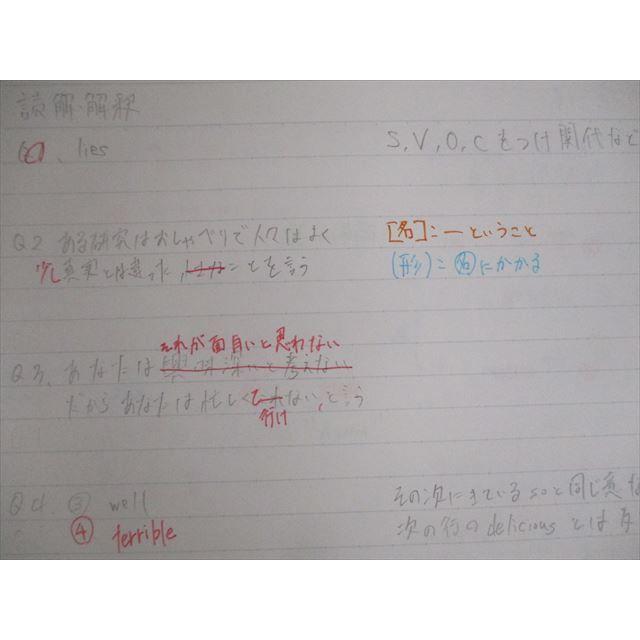 読解・解釈
Q1、lies
S, V, O, C をつけ 関代など
Q2 ある研究はおしゃべりで人々はよく
少し真実とは違った、ことを言う
[名]:ーということ
(形):名にかかる
それが面白いと思わない
Q3、あなたは興味深いと考えない
だからあなたは忙しくて ない、と言う
行け
Q4、③ well
④ terrible
その次にきているsoと同じ意
次の行のdeliciousとは